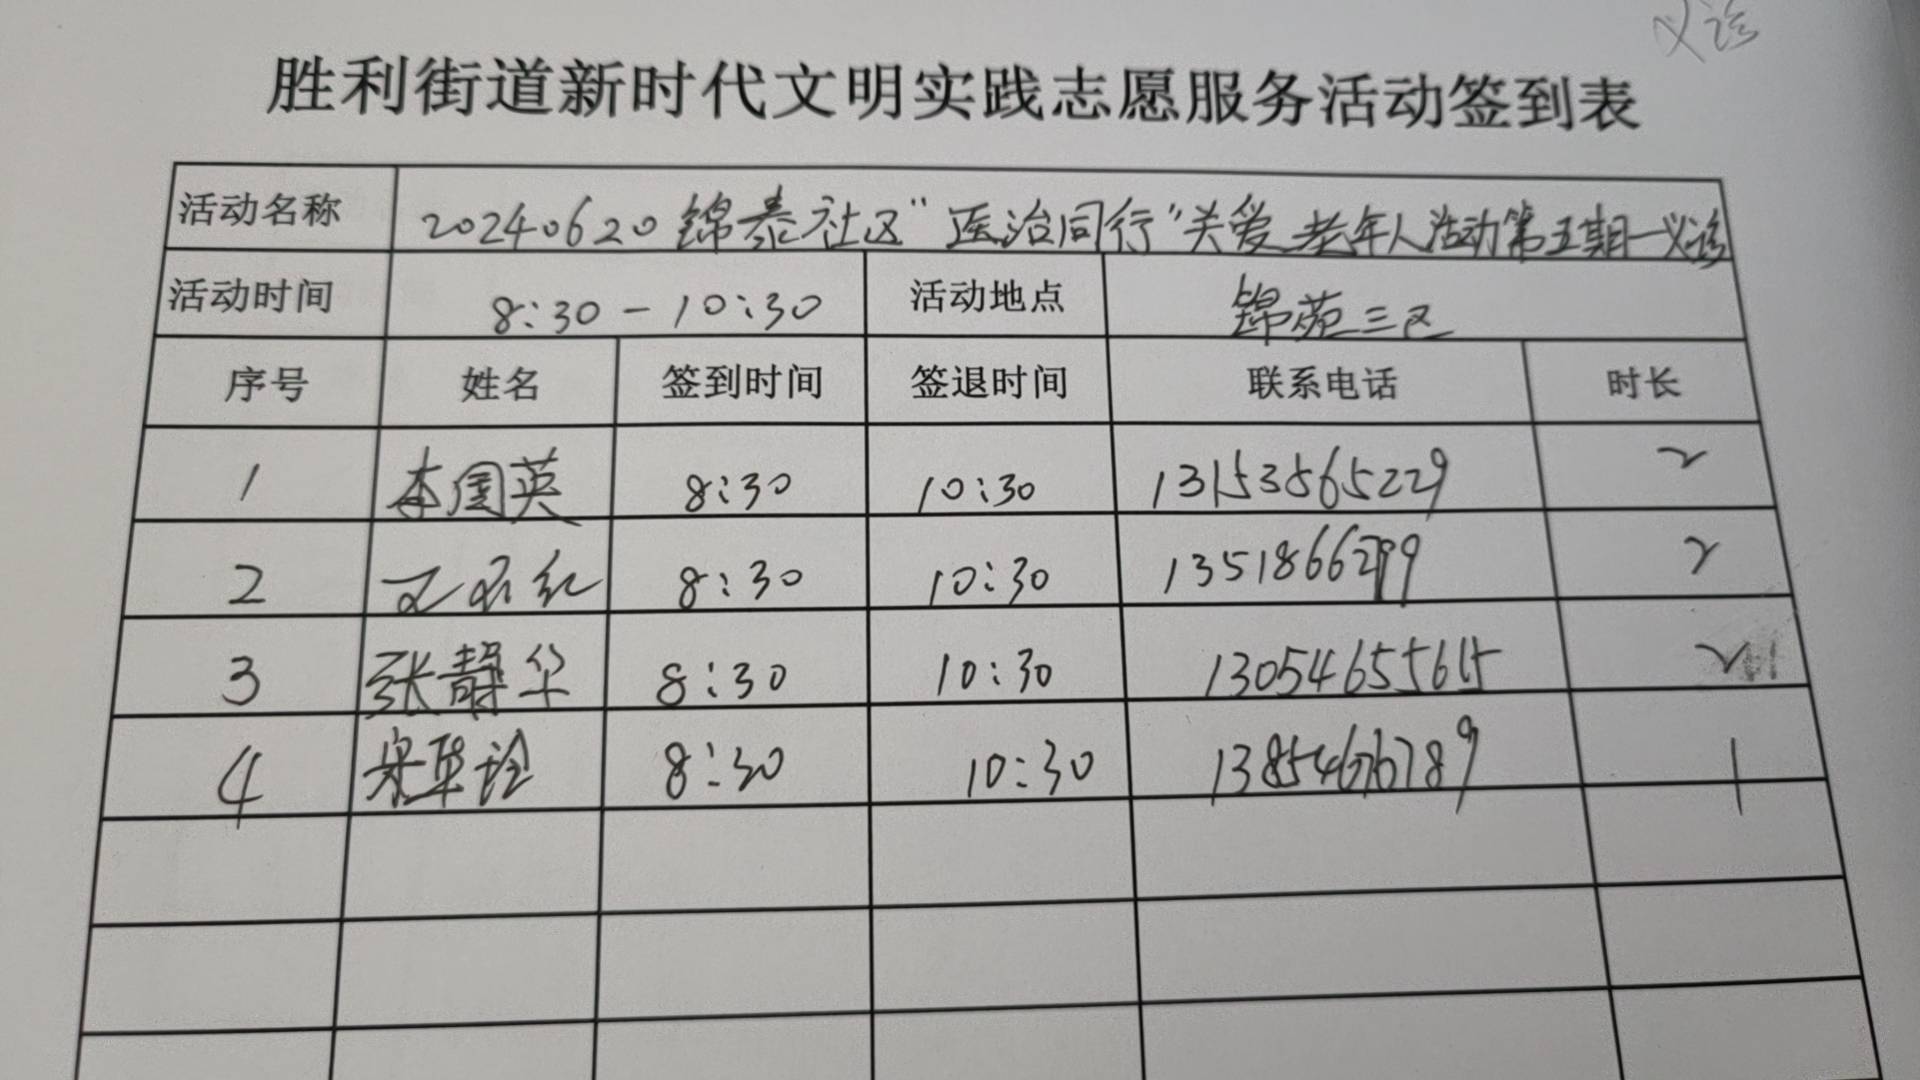 义诊
胜利街道新时代文明实践志愿服务活动签到表
活动名称 20240620锦泰社区"医治同行"关爱老年人活动第五期—义诊
活动时间 8:30-10:30 活动地点 锦苑三区
序号 姓名 签到时间 签退时间 联系电话 时长
1 李国英 8:30 10:30 13153565229 2
2 8:30 10:30 2
3 张静华 8:30 10:30 13054655615 2
4 8:30 10:30 1